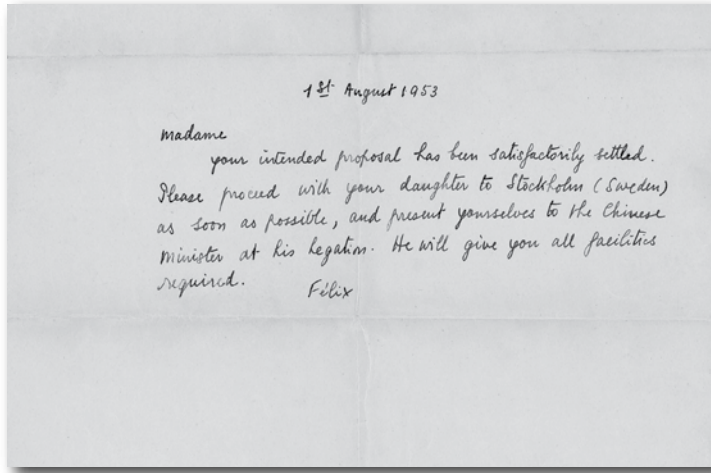 1st. August 1953
Madame
your intended proposal has been satisfactorily settled.
Please proceed with your daughter to Stockholm (Sweden)
as soon as possible, and present yourselves to the Chinese
Minister at his Legation. He will give you all facilities
required.
Félix